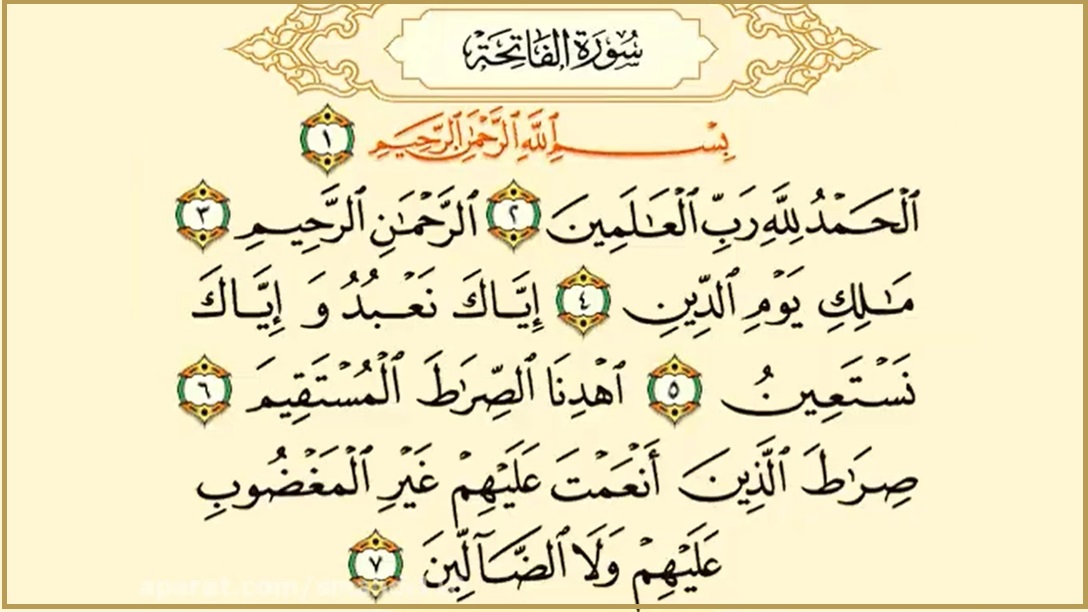 سُورَةُ الفَاتِحَةِ
بِسْمِ ٱللَّهِ ٱلرَّحْمَٰنِ ٱلرَّحِيمِ ١
ٱلْحَمْدُ لِلَّهِ رَبِّ ٱلْعَٰلَمِينَ ٢ ٱلرَّحْمَٰنِ ٱلرَّحِيمِ ٣
مَٰلِكِ يَوْمِ ٱلدِّينِ ٤ إِيَّاكَ نَعْبُدُ وَ إِيَّاكَ
نَسْتَعِينُ ٥ ٱهْدِنَا ٱلصِّرَٰطَ ٱلْمُسْتَقِيمَ ٦
صِرَٰطَ ٱلَّذِينَ أَنْعَمْتَ عَلَيْهِمْ غَيْرِ ٱلْمَغْضُوبِ
عَلَيْهِمْ وَلَا ٱلضَّآلِّينَ ٧